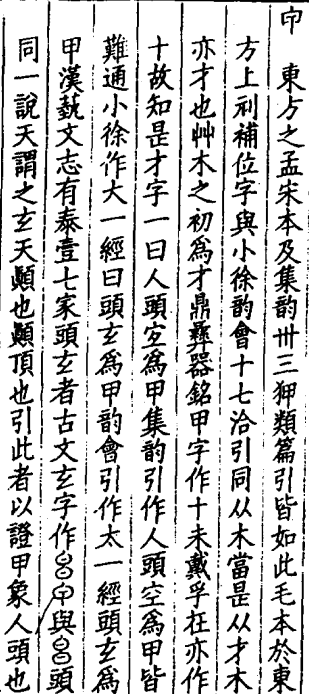 東方之孟宋本及集韵卅三狎類篇引皆如此毛本於東
方上刓補位字與小徐韵會十七洽引同从木當是从才木
亦才也艸木之初爲才鼎彝器銘甲字作十未戴孚在亦作
十故知是才字一曰人頭宐爲甲集韵引作人頭空爲甲皆
難通小徐作大一經曰頭玄爲甲韵會引作太一經頭玄爲
甲漢蓺文志有泰壹七家頭玄者古文玄字作與頭
同一說天謂之玄天顚也顚頂也引此者以證甲象人頭也